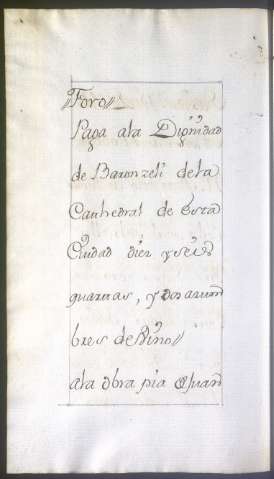 Foro//
Paga ala Dignidad
de Baronzeli dela
Cathedral de Esta
Ciudad diez yseis
quarnas, y dos arum
bres de Vino//
ala obra pia Q Juan